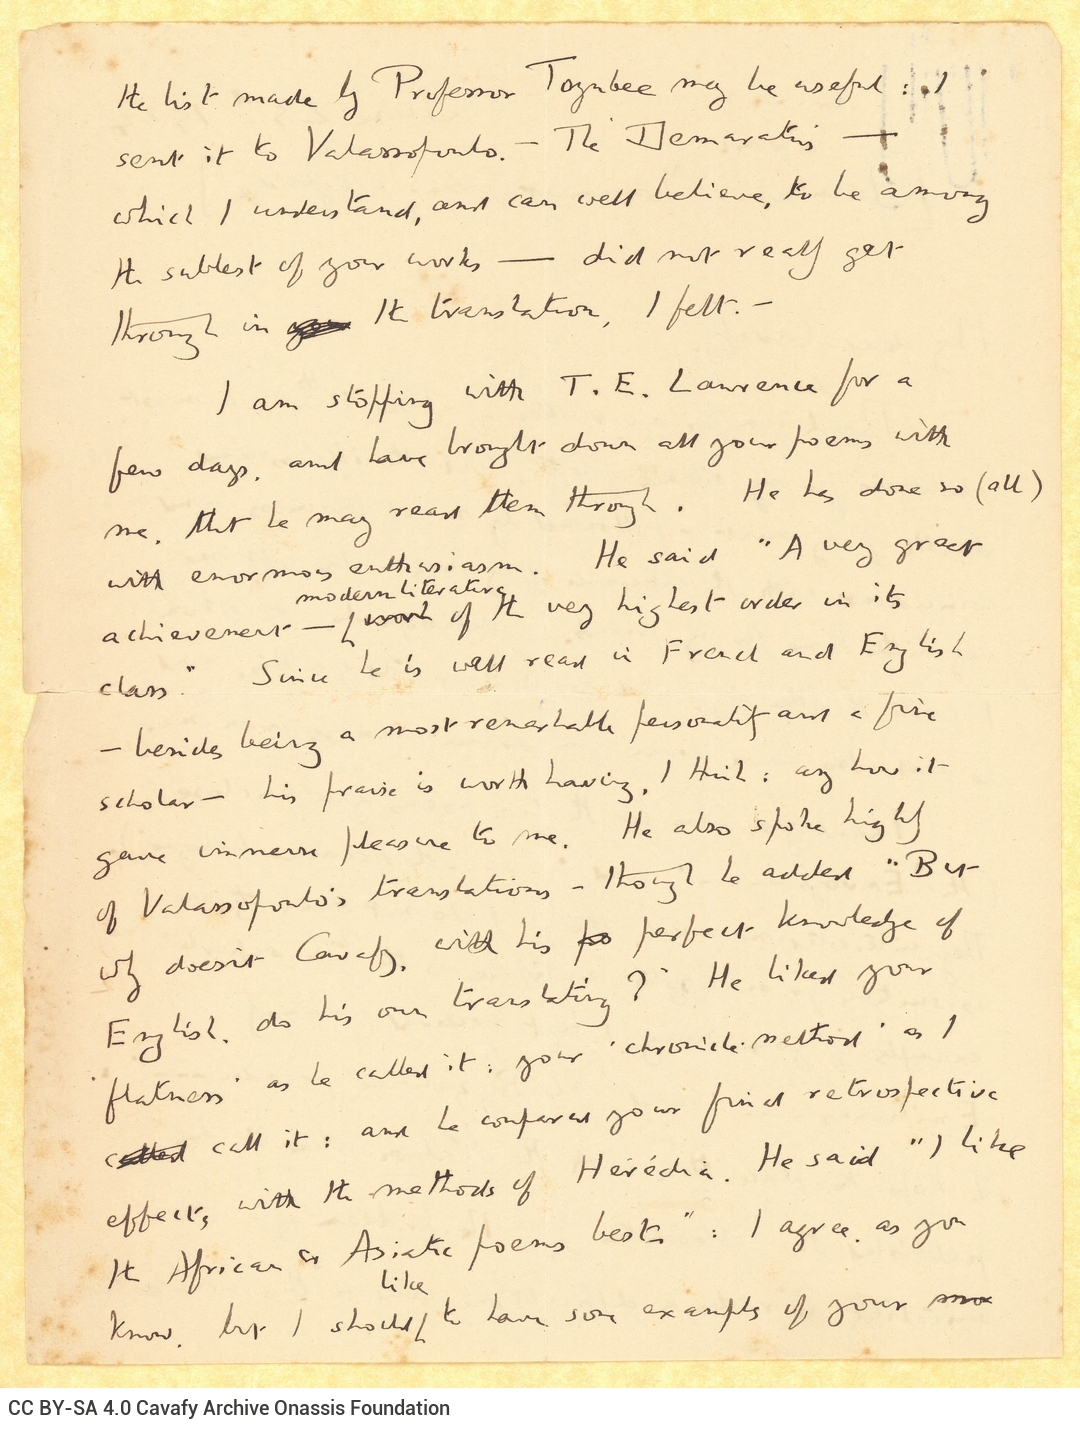 the list made by Professor Toynbee may be useful : I
sent it to Valassopoulo. — The Demaratus —
which I understand, and can well believe, to be among
the subtlest of your works — did not really get
through in the translation, I felt. —
I am stopping with T. E. Lawrence for a
few days, and have brought down all your poems with
me, that he may read them through. He has done so (all)
with enormous enthusiasm. He said "A very great
modern literature
achievement — work of the very highest order in its
class." Since he is well read in French and English
— besides being a most remarkable personality and a fine
scholar — his praise is worth having, I think : any how it
gave immense pleasure to me. He also spoke highly
of Valassopoulo's translations — though he added "But
why doesn't Cavafy, with his po perfect knowledge of
English, do his own translating?" He liked your
'flatness' as he called it : your 'chronicle-method' as I
called call it : and he compared your final retrospective
effects, with the methods of Hérédia. He said "I like
the African or Asiatic poems best." : I agree, as you
like
know, but I should to have some examples of your
CC BY-SA 4.0 Cavafy Archive Onassis Foundation